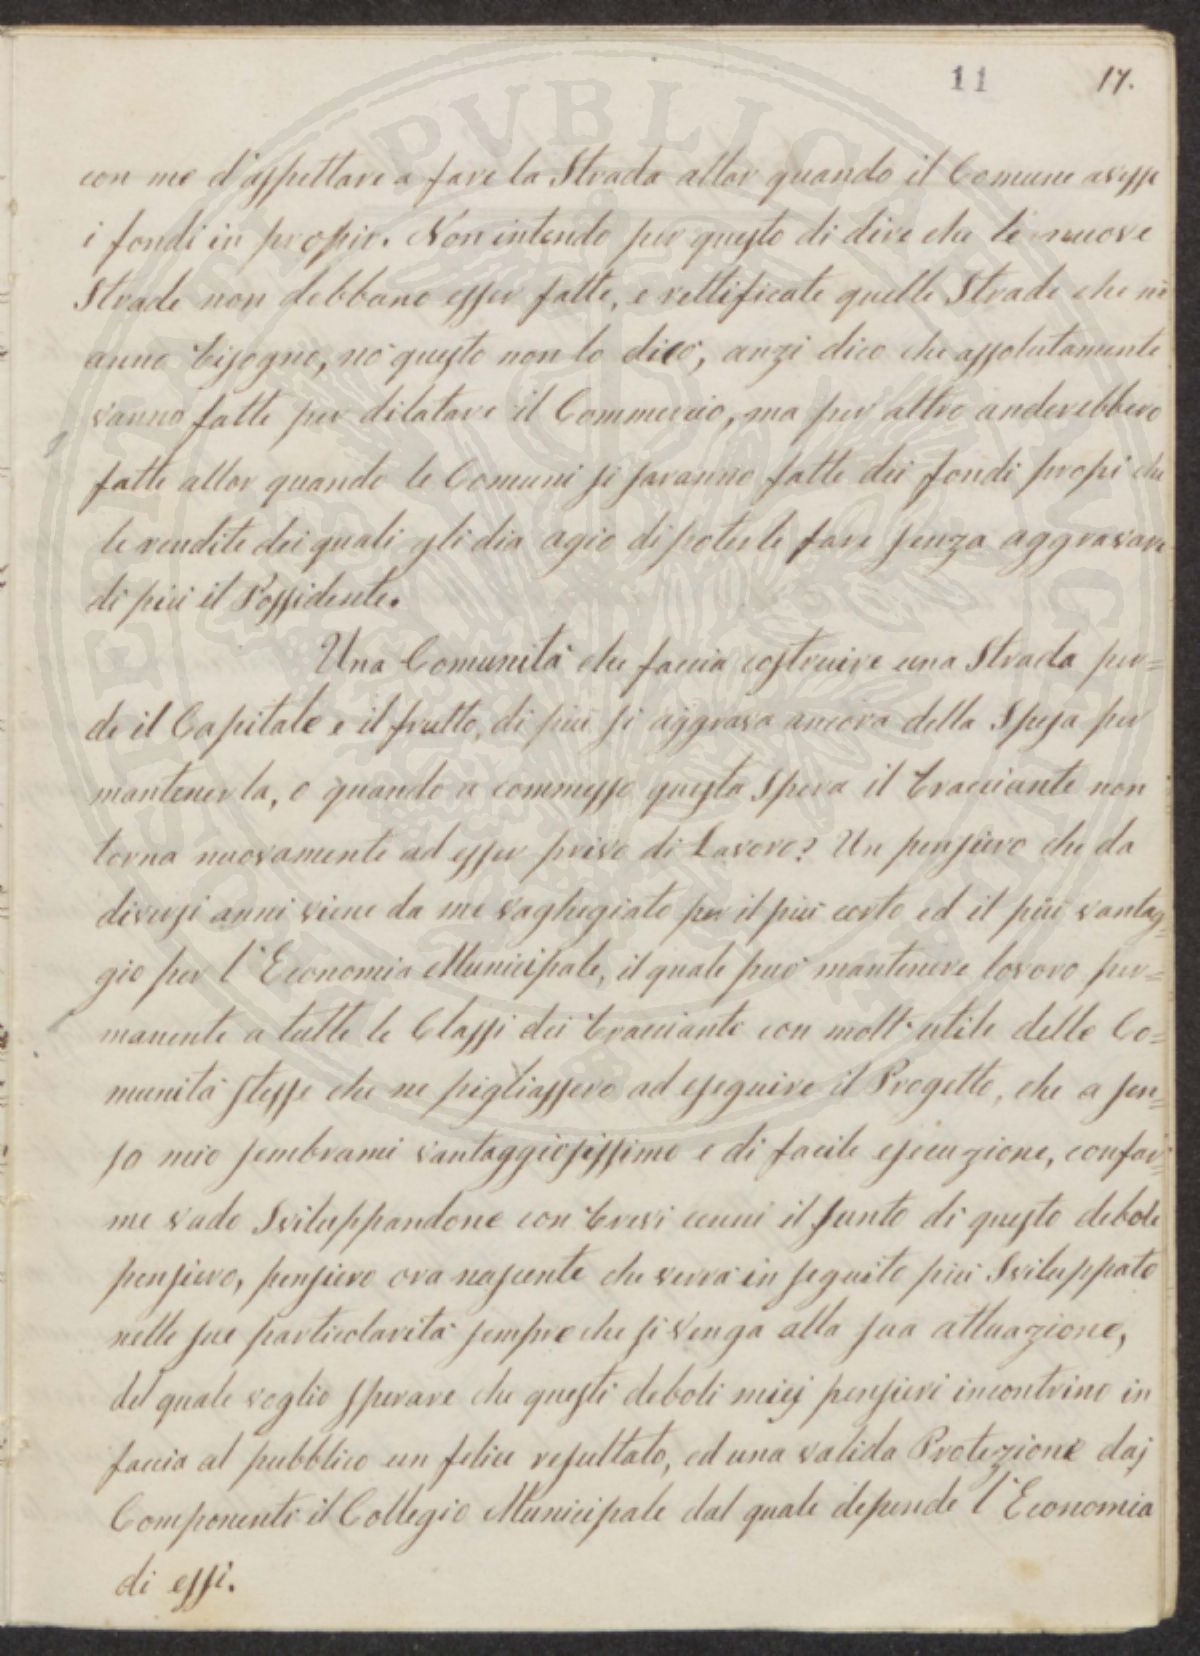 11 17.
con me d'aspettare a fare la Strada allor quando il Comune avesse
i fondi in propio. Non intendo per questo di dire che le nuove
Strade non debbano esser fatte, e rettificate quelle Strade che ne
anno bisogno, nò questo non lo dico, anzi dico che assolutamente
vanno fatte per dilatare il Commercio, ma per altro anderebbero
fatte allor quando le Comuni si saranno fatte dei fondi propi che
le rendite dei quali gli dia agio di poterle fare senza aggravare
di più il Possidente.
Una Comunità che faccia costruire una Strada per=
de il Capitale e il frutto, di più si aggrava ancora della Spesa per
mantenerla, e quando a commesso questa Spera il bracciante non
torna nuovamente ad esser privo di Lavoro? Un pensiero che da
diversi anni viene da me vaghegiato per il più certo ed il più vantag=
gio per l'Economia Municipale, il quale può mantenere lovoro per=
manente a tutte le Classi dei braccianti con molt'utile delle Co=
munità stesse che ne pigliassero ad eseguire il Progetto, che a sen=
so mio sembrami vantaggiosissimo e di facile esecuzione, confor=
me vado Sviluppandone con brevi cenni il sunto di questo debole
pensiero, pensiero ora nascente che verrà in seguito più Sviluppato
nelle sue particolarità sempre che si venga alla sua attuazione,
del quale voglio sperare che questi deboli miej pensieri incontrino in
faccia al pubblico un felice resultato, ed una valida Protezione daj
Componenti il Collegio Municipale dal quale depende l'Economia
di essi.